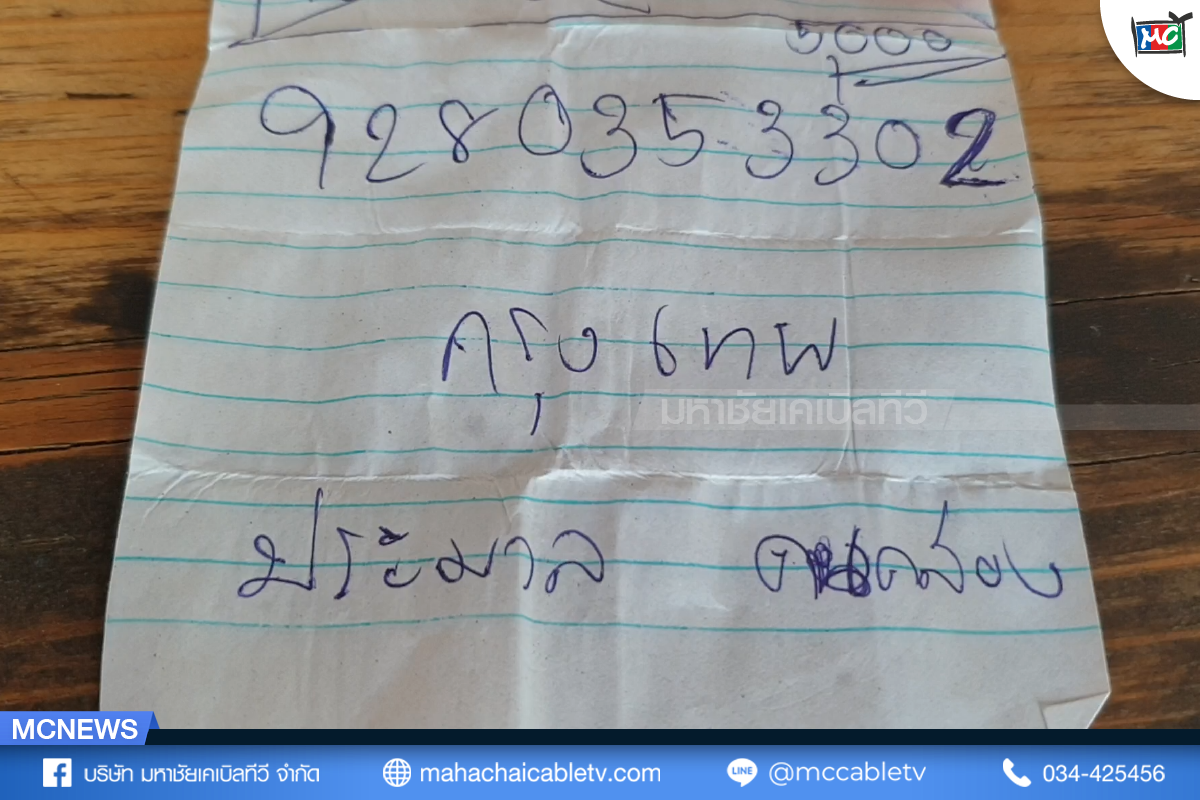 MC
5000
928 035 3302
กรุงเทพ
มหาชัยเคเบิลทีวี
ประมาล
MCNEWS
บริษัท มหาชัยเคเบิลทีวี จำกัด mahachaicabletv.com LINE @mccabletv 034-425456